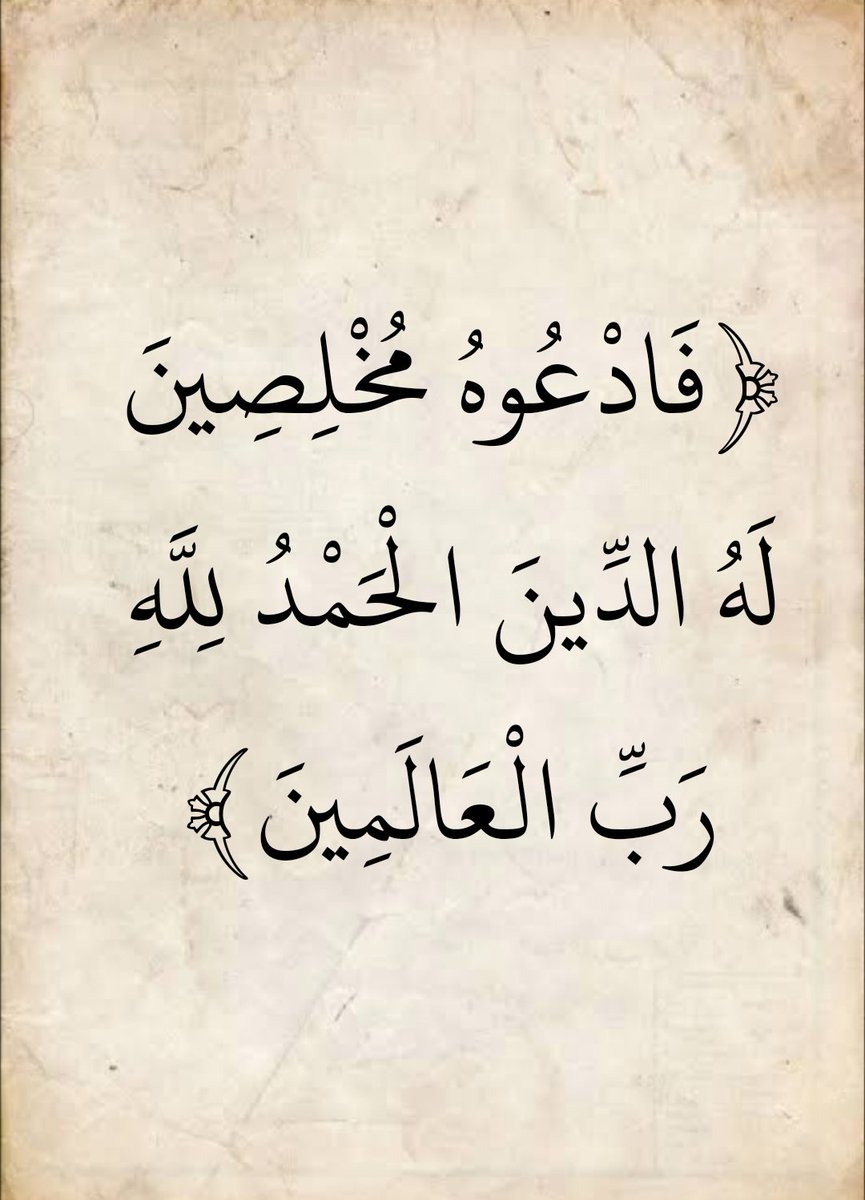 ﴿فَادْعُوهُ مُخْلِصِينَ
لَهُ الدِّينَ الْحَمْدُ لِلَّهِ
رَبِّ الْعَالَمِينَ﴾